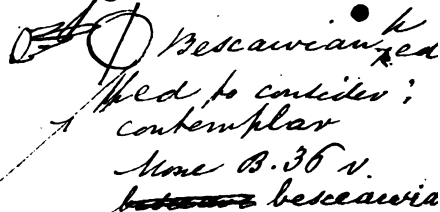 Bescawian h
ked to consider;
contemplar
Mone B. 36 v.
besceawia